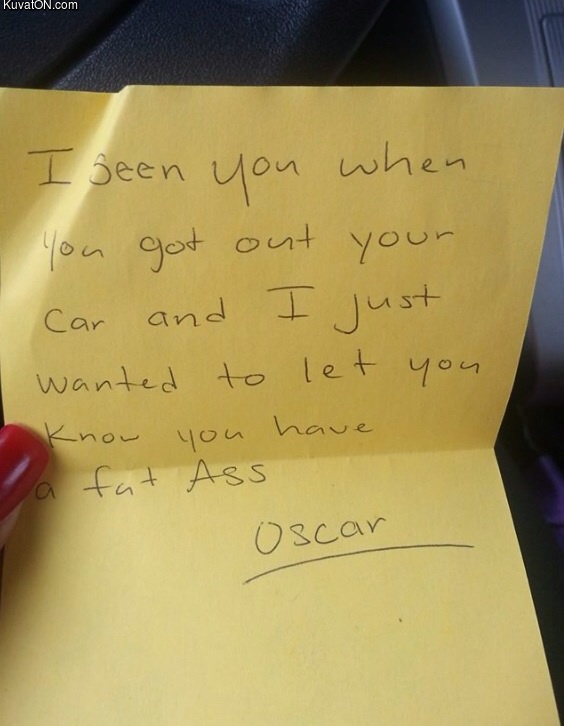 KuvatON.com
I seen you when
you got out your
car and I just
wanted to let you
know you have
a fat Ass
Oscar